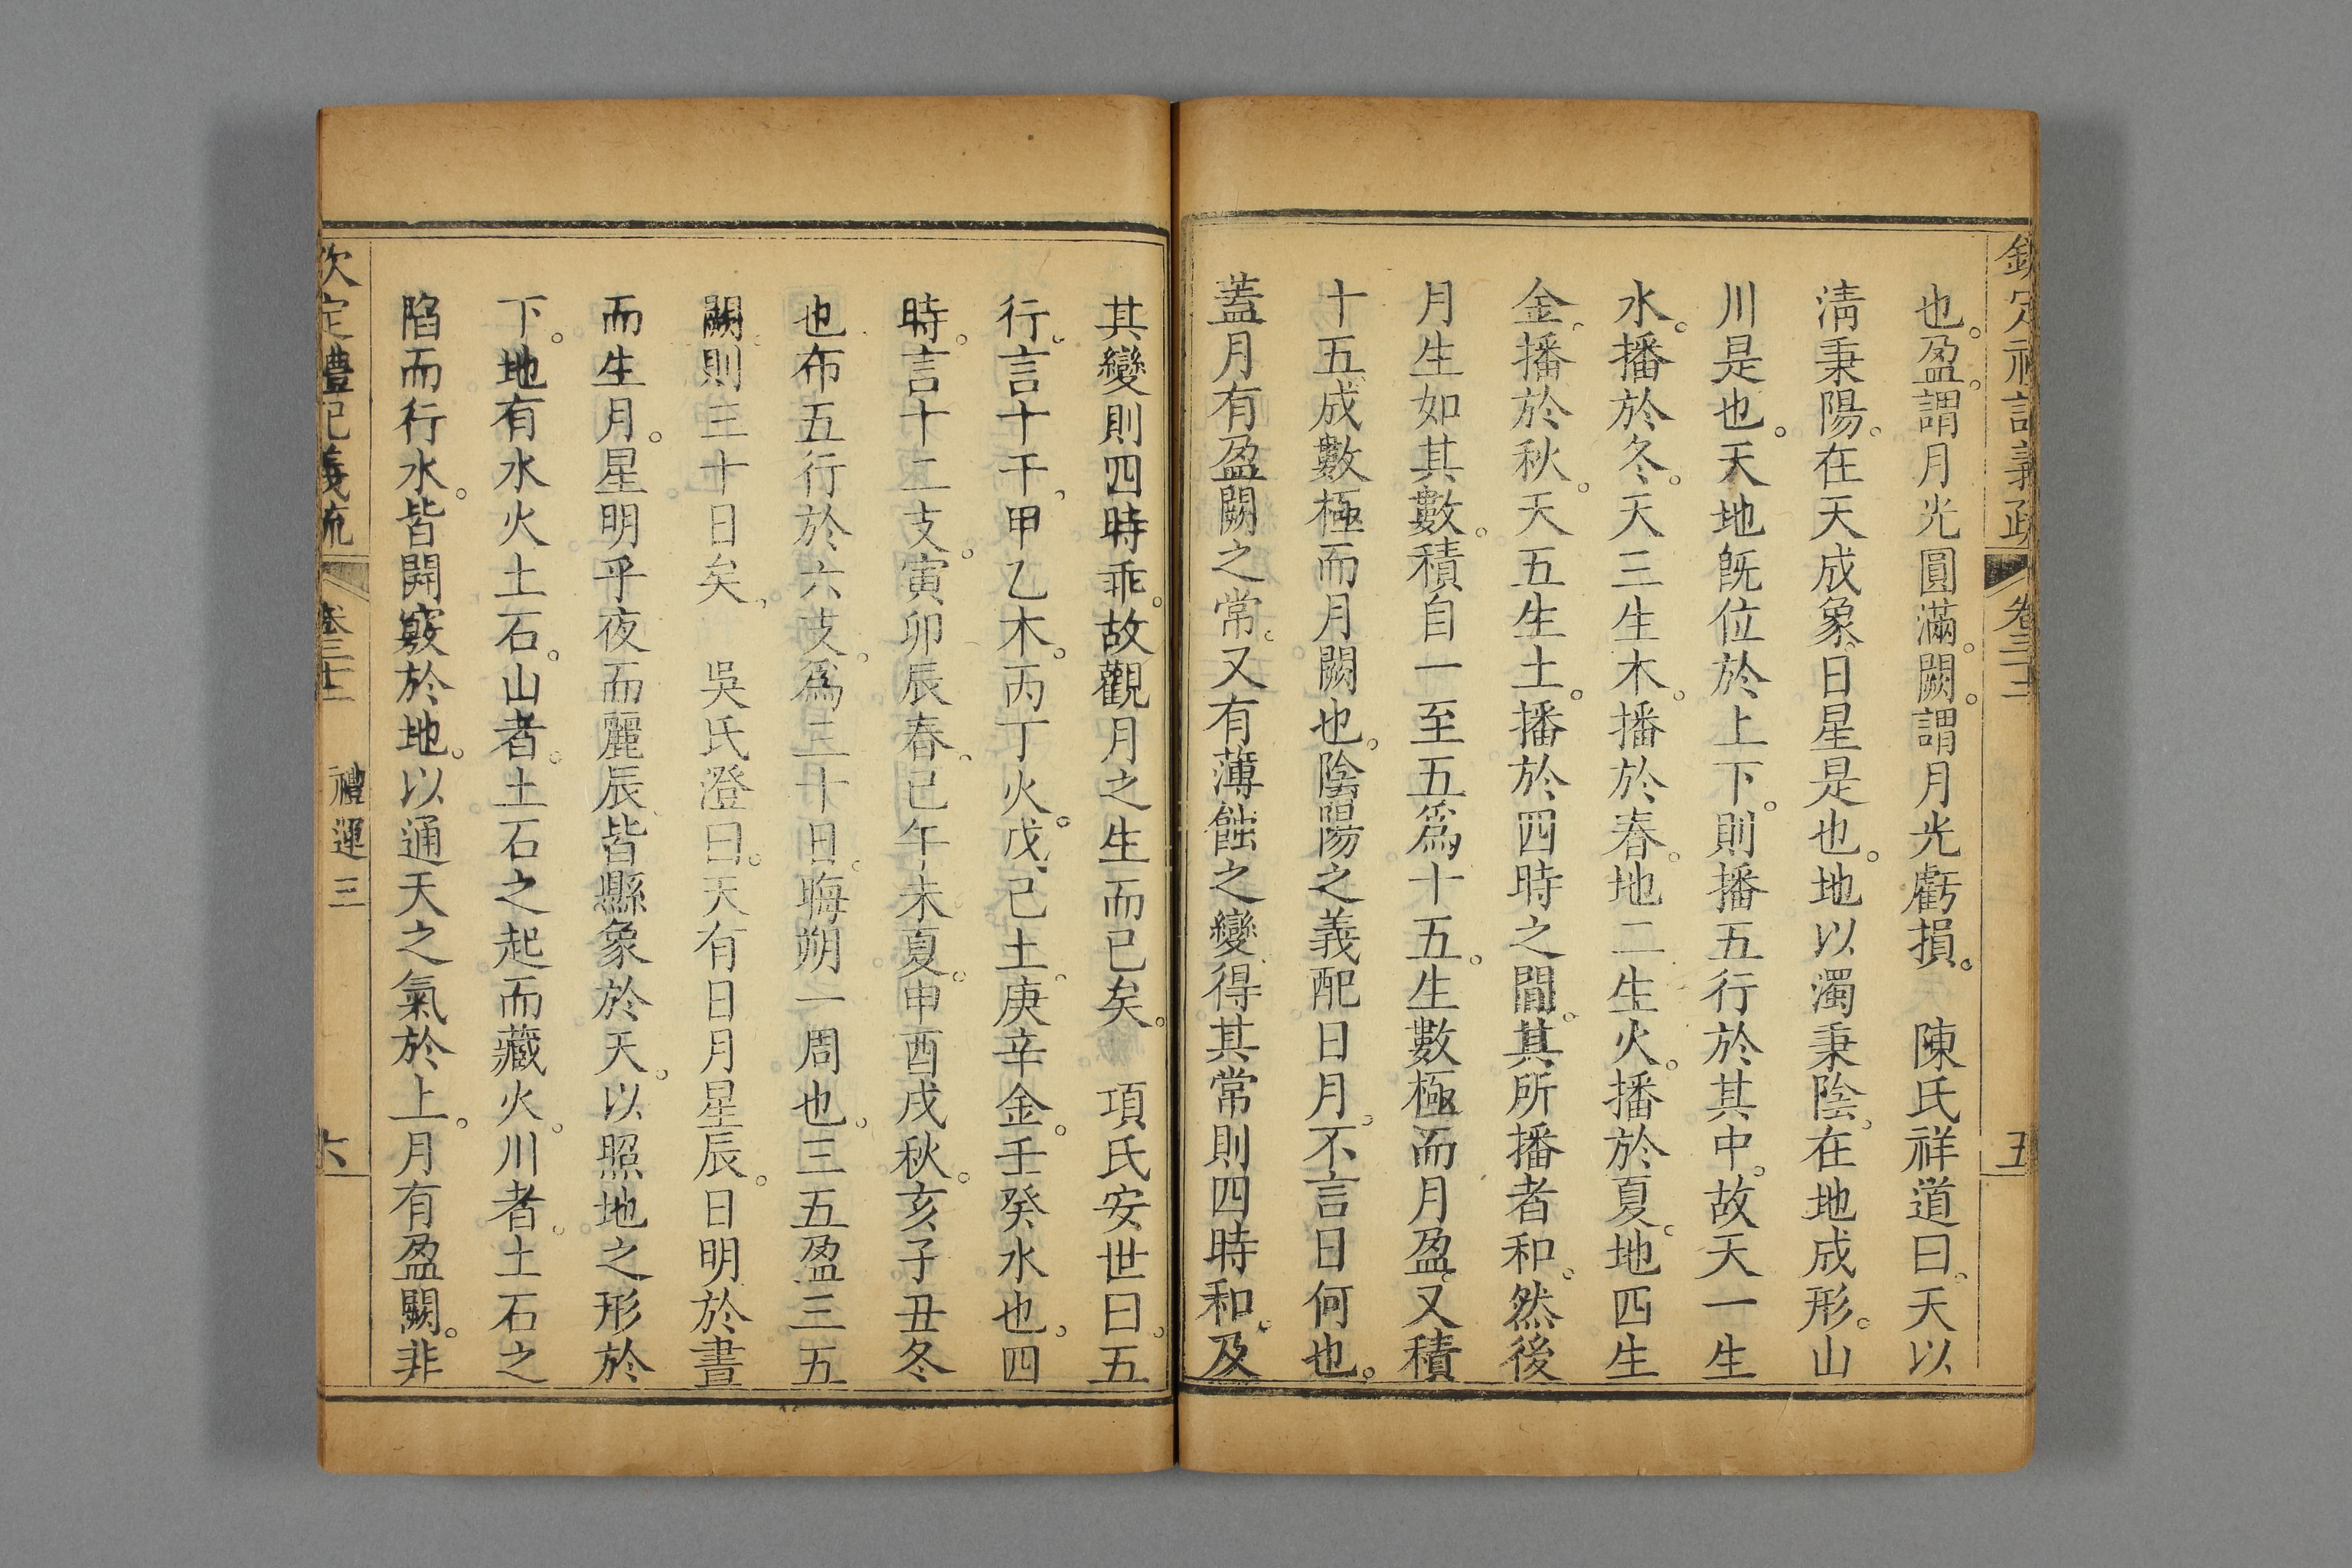 欽定禮記義疏 卷三十二 五
也。盈。謂月光圓滿。闕。謂月光虧損。 陳氏祥道曰。天以
淸秉陽。在天成象。日星是也。地以濁秉陰。在地成形。山
川是也。天地旣位於上下。則播五行於其中。故天一生
水。播於冬。天三生木。播於春。地二生火。播於夏。地四生
金。播於秋。天五生土。播於四時之閒。其所播者和。然後
月生如其數。積自一至五爲十五。生數極而月盈。又積
十五。成數極而月闕也。陰陽之義配日月。不言日何也。
蓋月有盈闕之常。又有薄蝕之變。得其常則四時和。及
其變則四時乖。故觀月之生而已矣。 項氏安世曰。五
行。言十干。甲乙木。丙丁火。戊己土。庚辛金。壬癸水也。四
時。言十二支。寅卯辰春。巳午未夏。申酉戌秋。亥子丑冬
也。布五行於六支。爲三十日。晦朔一周也。三五盈三五
闕。則三十日矣。 吳氏澄曰。天有日月星辰。日明於晝
而生月。星明乎夜而麗辰。皆縣象於天。以照地之形於
下。地有水火土石。山者。土石之起而藏火。川者。土石之
陷而行水。皆開竅於地。以通天之氣於上。月有盈闕。非
欽定禮記義疏 卷三十二 禮運三 六